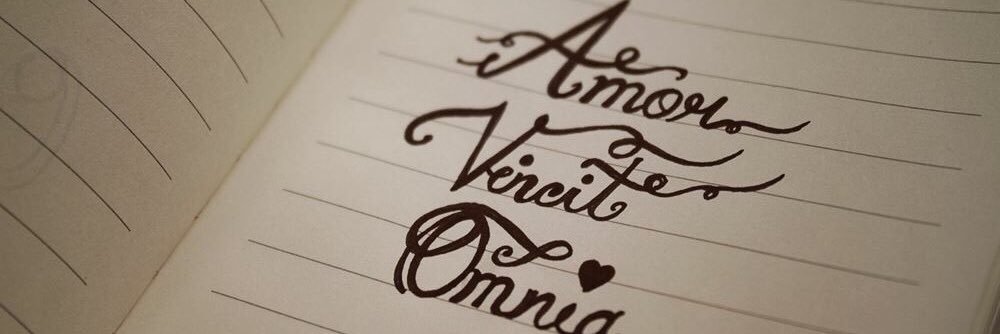 Amor
Vincit
Omnia